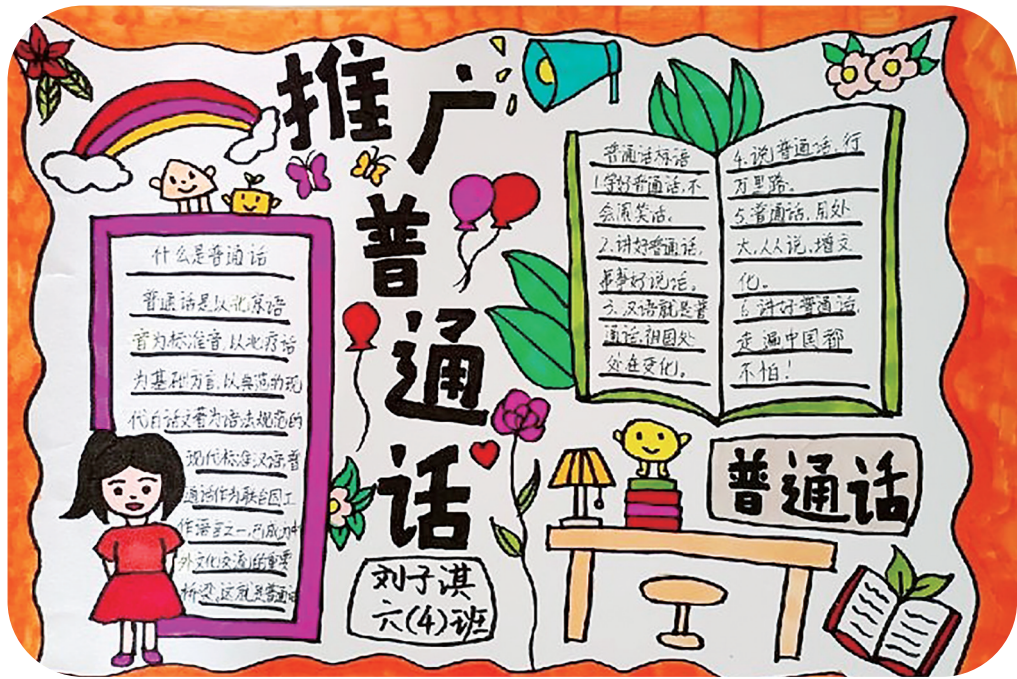 推广
普
通
话
什么是普通话
普通话是以北京语
音为标准音,以北方话
为基础方言,以典范的现
代白话文著为语法规范的
现代标准汉语,普
通话作为联合国工
作语言之一,已成为中
外文化交流的重要
桥梁,这就是普通话
普通话标语
1.学好普通话,不
会闹笑话。
2.讲好普通话,
事事好说话。
3.汉语就是普
通话,祖国处
处在变化。
4.说普通话,行
万里路。
5.普通话,用处
大,人人说,增文
化。
6.讲好普通话,
走遍中国都
不怕!
普通话
刘子淇
六(4)班